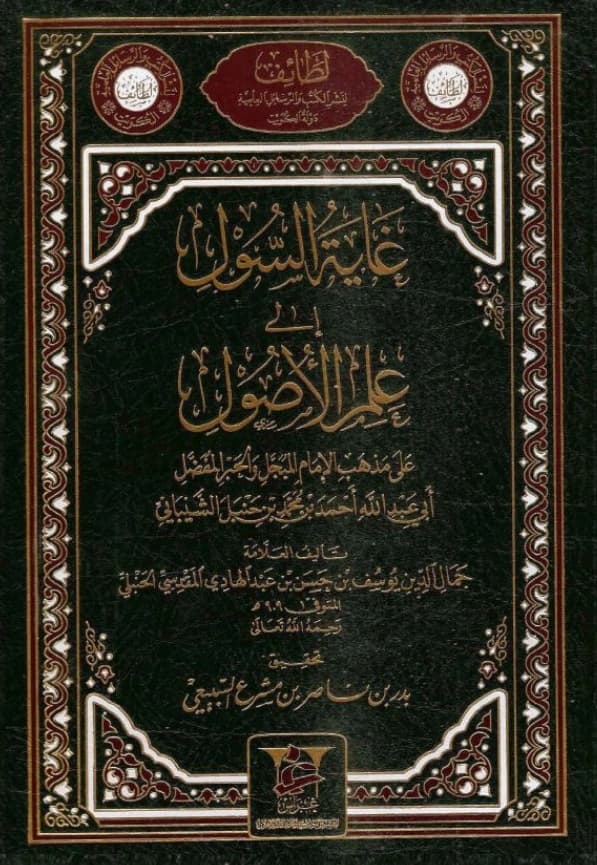 لطائف
لنشر الكتب والرسائل العلمية
دولة الكويت
لطائف
الكويت
لطائف
الكويت
غَايَةُ السُّولِ
إلى
عِلمِ الأُصُولِ
عَلى مَذهَبِ الإمَامِ المُبَجَّلِ وَالحَبرِ المُفَضَّلِ
أَبي عَبدِ اللهِ أَحمَدَ بنِ مُحَمَّدِ بنِ حَنبَلَ الشَّيبَانيِّ
تأليف العلّامة
جَمال الدِّين يُوسُف بن حَسَن بن عَبدالهَادي المَقدسِيّ الحَنبليِّ
المتوفى ٩٠٩ هـ
رَحِمَهُ اللهُ تَعَالى
تحقيق
بدر بن ناصر بن مشرع السبيعي
غراس